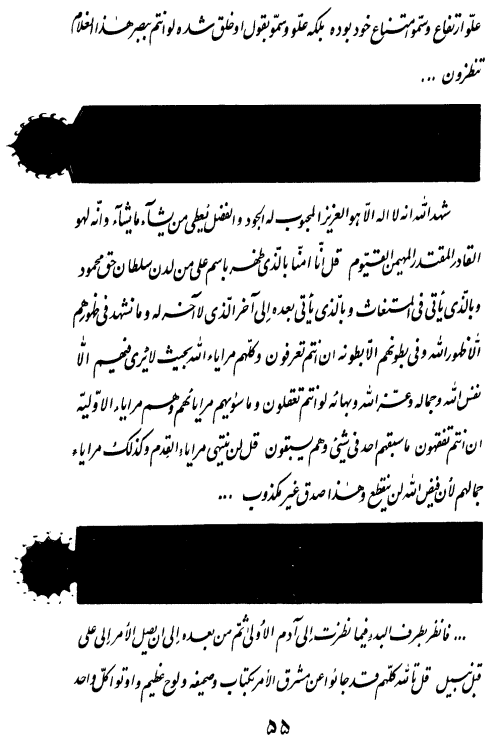 علّو ارتفاع و سمّو امتناع خود بوده بلکه علّو و سمّو بقول او خلق شده لو انتم ببصر هذا الغلام
تنظرون ...
شهد الله انه لا اله الّا هو العزیز المحبوب له الجود و الفضل یُعطی من یشآء ما یشآء و انّه لهو
القادر المقتدر المهیمن القیّوم قل انّا امنّا بالّذی ظهر باسم علی من لدن سلطان حق محمود
و بالّذی یأتی فی المستغاث و بالّذی یأتی بعده إلی آخر الّذی لا آخر له و ما نشهد فی ظهورهم
الّا ظهور الله و فی بطونهم الّا بطونه ان انتم تعرفون و کلّهم مرایاء الله بحیث لا یُری فیهم الّا
نفس الله و جماله و عزّ الله و بهائه لو انتم تعقلون و ما سویهم مرایائهم و هم مرایاء الاوّلیّه
ان انتم تفقهون ما سبقهم احد فی شیئ و هم یسبقون قل لن ینتهی مرایاء القدم و کذلک مرایاء
جمالهم لأن فیض الله لن ینقطع و هذا صدق غیر مکذوب ...
... فانظر بطرف البدء فیما نظرت إلی آدم الأولی ثمّ من بعده إلی ان یصل الأمر إلی علی
قبل نبیل قل تالله کلّهم قد جائوا عن مشرق الأمر بکتاب و صحیفه و لوح عظیم و اوتوا کلّ واحد
۵۵